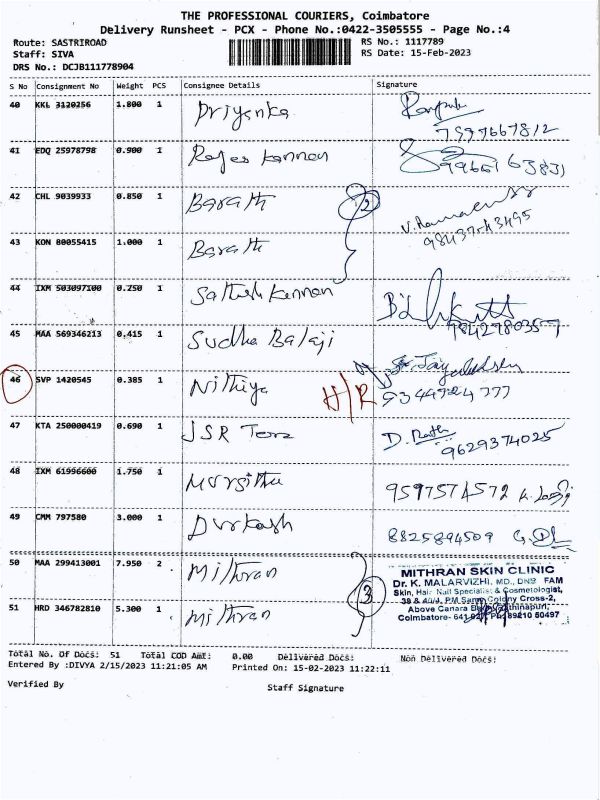 THE PROFESSIONAL COURIERS, Coimbatore
Delivery Runsheet - PCX - Phone No.:0422-3505555 - Page No.:4
Route: SASTRIROAD
RS No.: 1117789
Staff: SIVA
RS Date: 15-Feb-2023
DRS No.: DCJB111778904
S No Consignment No Weight PCS Consignee Details Signature
40 KKL 3120256 1.800 1 Priyanka
7597667812
41 EDQ 25978798 0.900 1 Rajes Kannan
42 CHL 9039933 0.850 1 Barath 2
98437043495
43 KON 80055415 1.000 1 Barath
44 IXM 503097100 0.250 1 Sathish Kannan
9842780357
45 MAA 569346213 0.415 1 Sudha Balaji
46 SVP 1420545 0.385 1 Nithiya H/R 9344924777
47 KTA 250000419 0.690 1 JSR Tera D.
9629374025
48 IXM 61996600 1.750 1 9597574572
49 CMM 797580 3.000 1 8825894509
50 MAA 299413001 7.950 2 Mithran
51 HRD 346782810 5.300 1 Mithran 3
MITHRAN SKIN CLINIC
Dr. K. MALARVIZHI, MD., DNB FAM
Skin, Hair Nail Specialist & Cosmetologist,
Colony Cross-2,
Above Canara
Coimbatore- 641 89210 60497
Total No. Of Docs: 51 Total COD Amt: 0.00 Delivered Docs: Non Delivered Docs:
Entered By :DIVYA 2/15/2023 11:21:05 AM Printed On: 15-02-2023 11:22:11
Verified By
Staff Signature